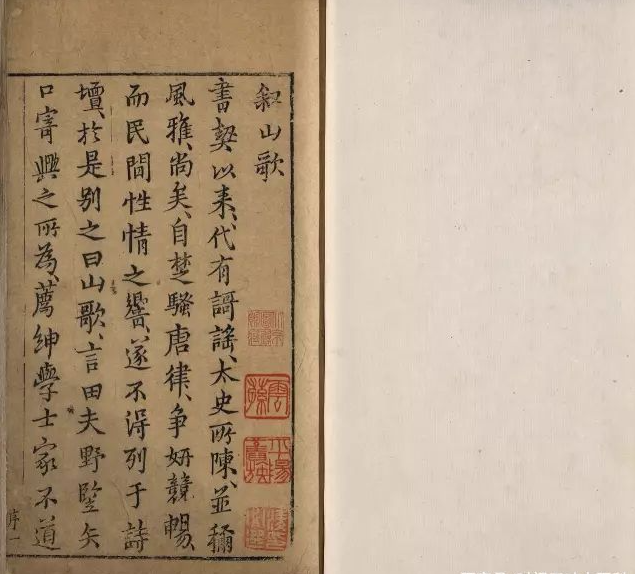 叙山歌
書契以来、代有謌謡、太史所陳、並稱
風雅、尚矣、自楚騷唐律、争妍競暢、
而民間性情之響、遂不得列于詩
壇、於是别之曰山歌、言田夫野竪矢
口寄興之所為、薦紳學士家不道
序一